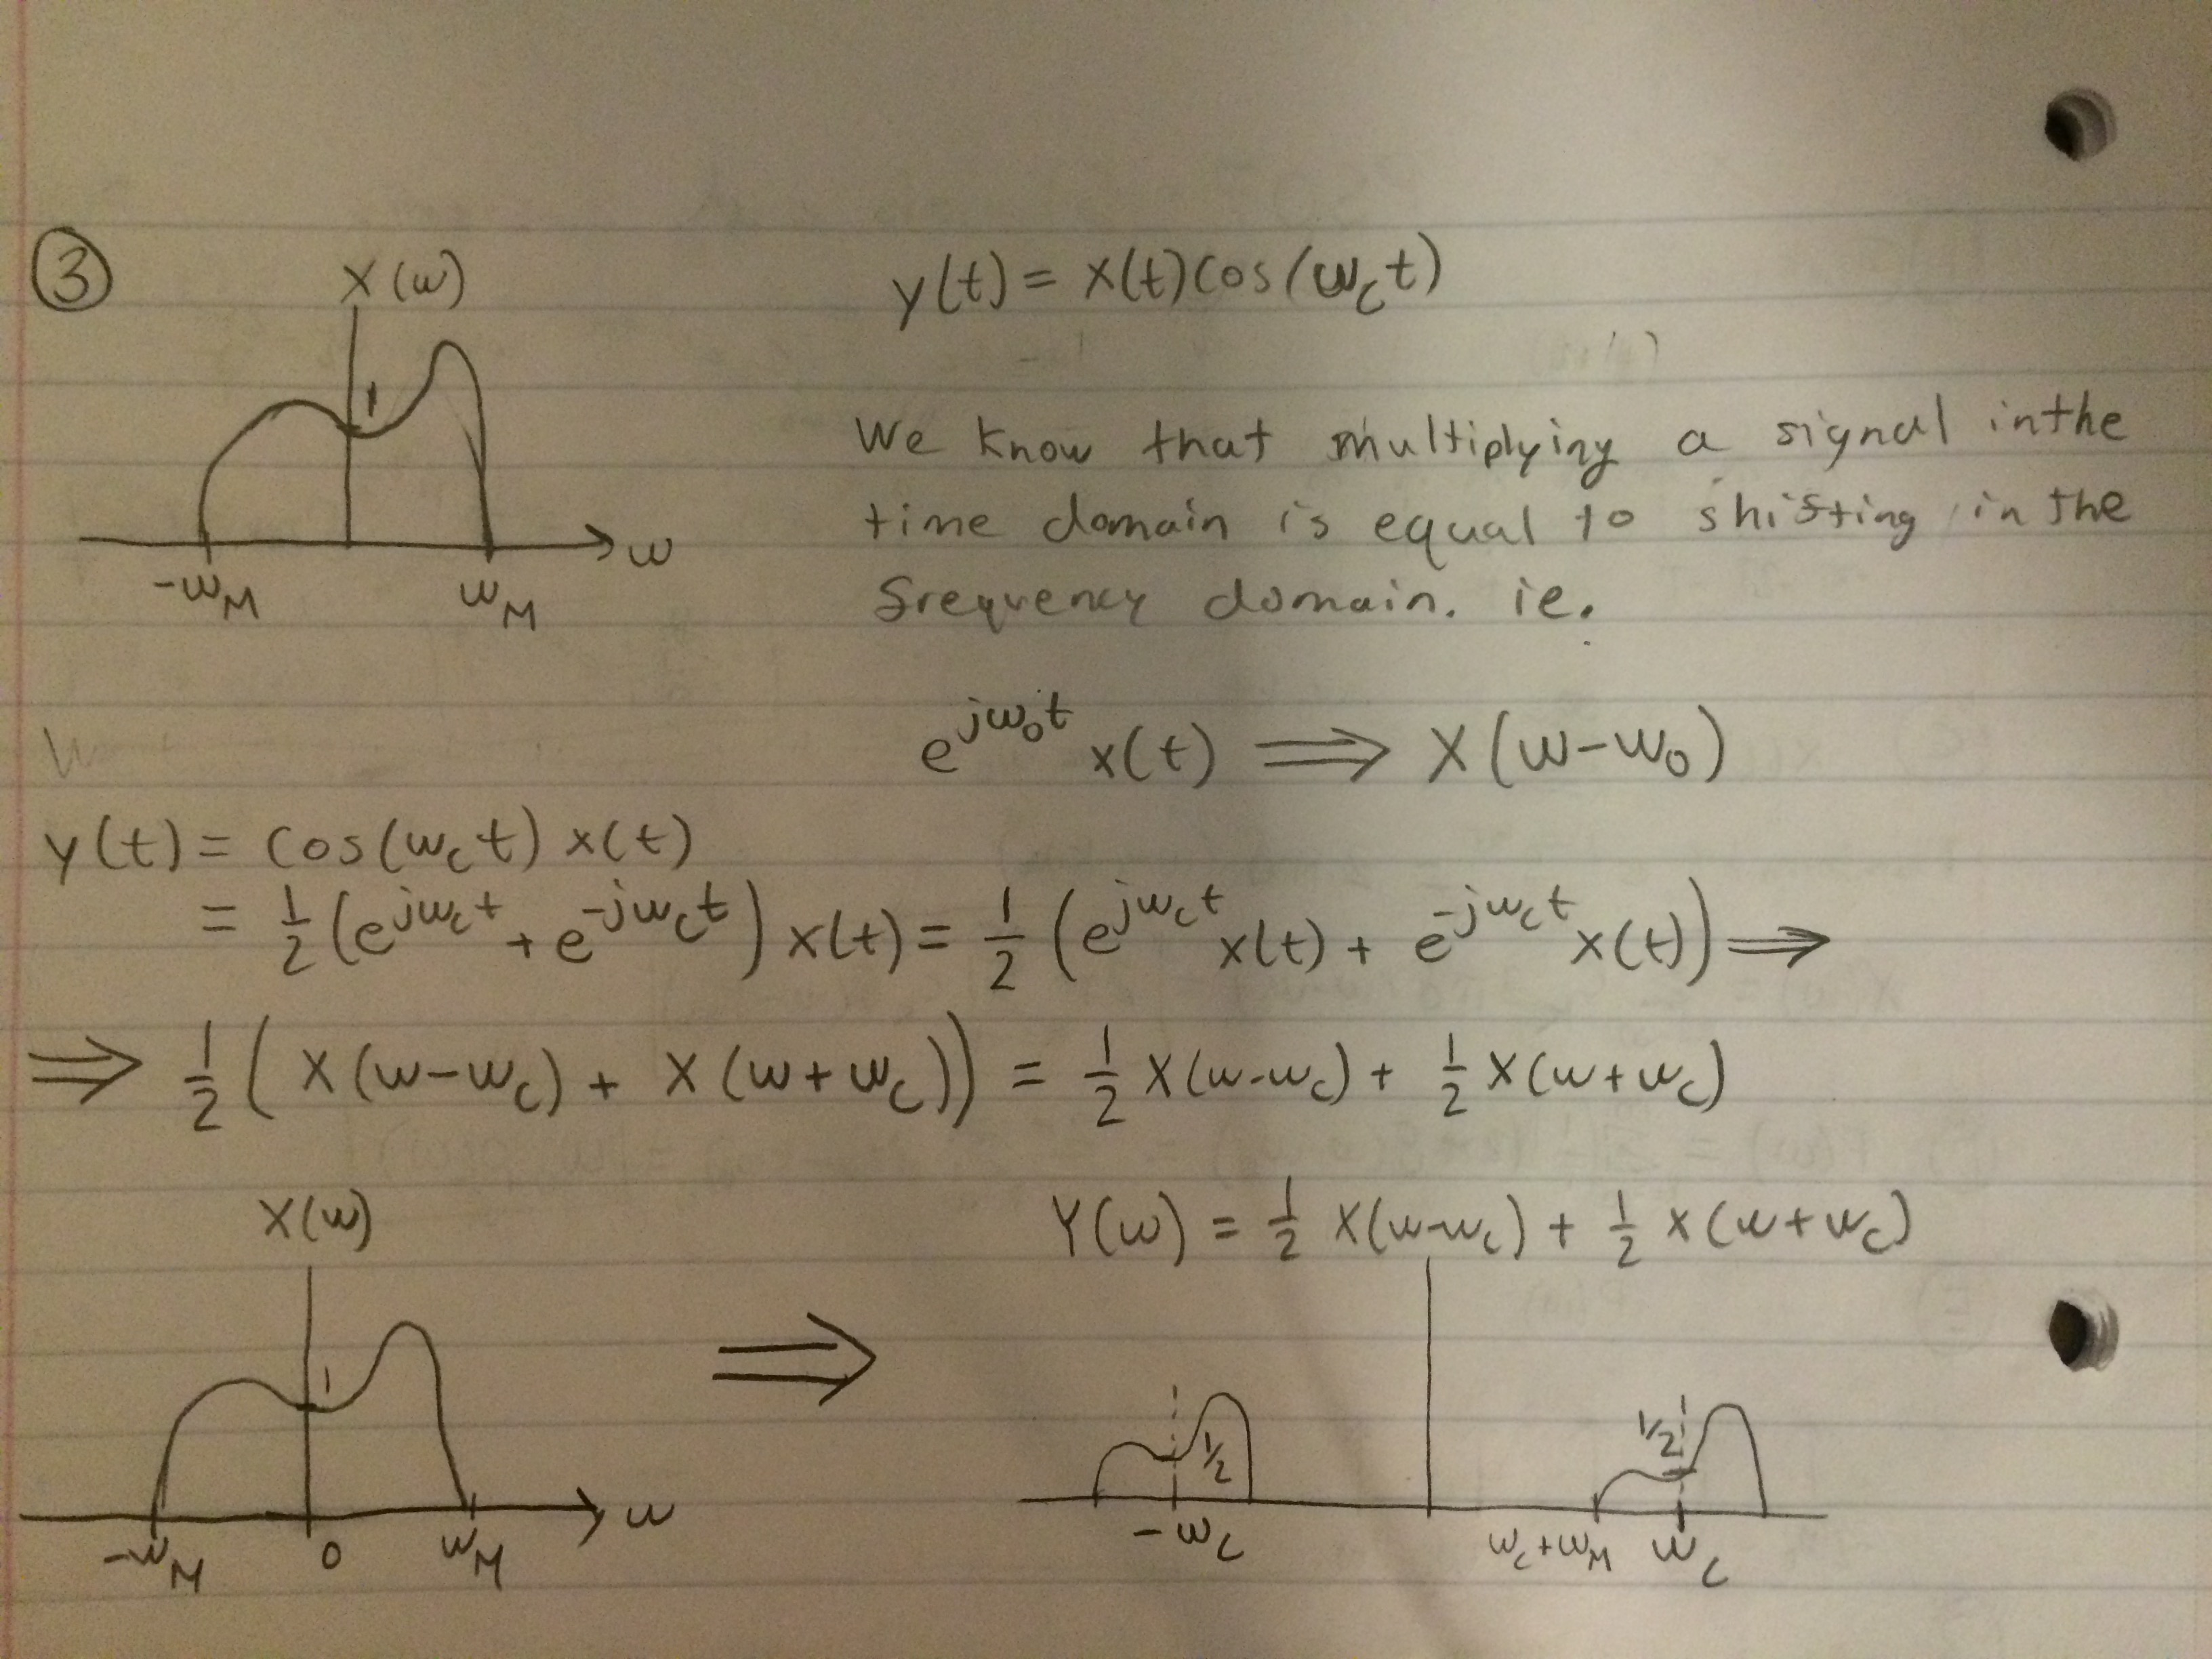 ③ X(ω) y(t) = x(t)cos(ω_c t)
1
-ω_M ω_M ω
We know that multiplying a signal in the
time domain is equal to shifting in the
frequency domain. ie.
e^{jω_0t} x(t) ⟹ X(ω-ω_0)
y(t) = cos(ω_c t) x(t)
= 1/2 (e^{jω_c t} + e^{-jω_c t}) x(t) = 1/2 (e^{jω_c t} x(t) + e^{-jω_c t} x(t)) ⟹
⟹ 1/2 (X(ω-ω_c) + X(ω+ω_c)) = 1/2 X(ω-ω_c) + 1/2 X(ω+ω_c)
X(ω) Y(ω) = 1/2 X(ω-ω_c) + 1/2 X(ω+ω_c)
⟹
1 1/2 1/2
-ω_M 0 ω_M ω -ω_c ω_c+ω_M ω_c